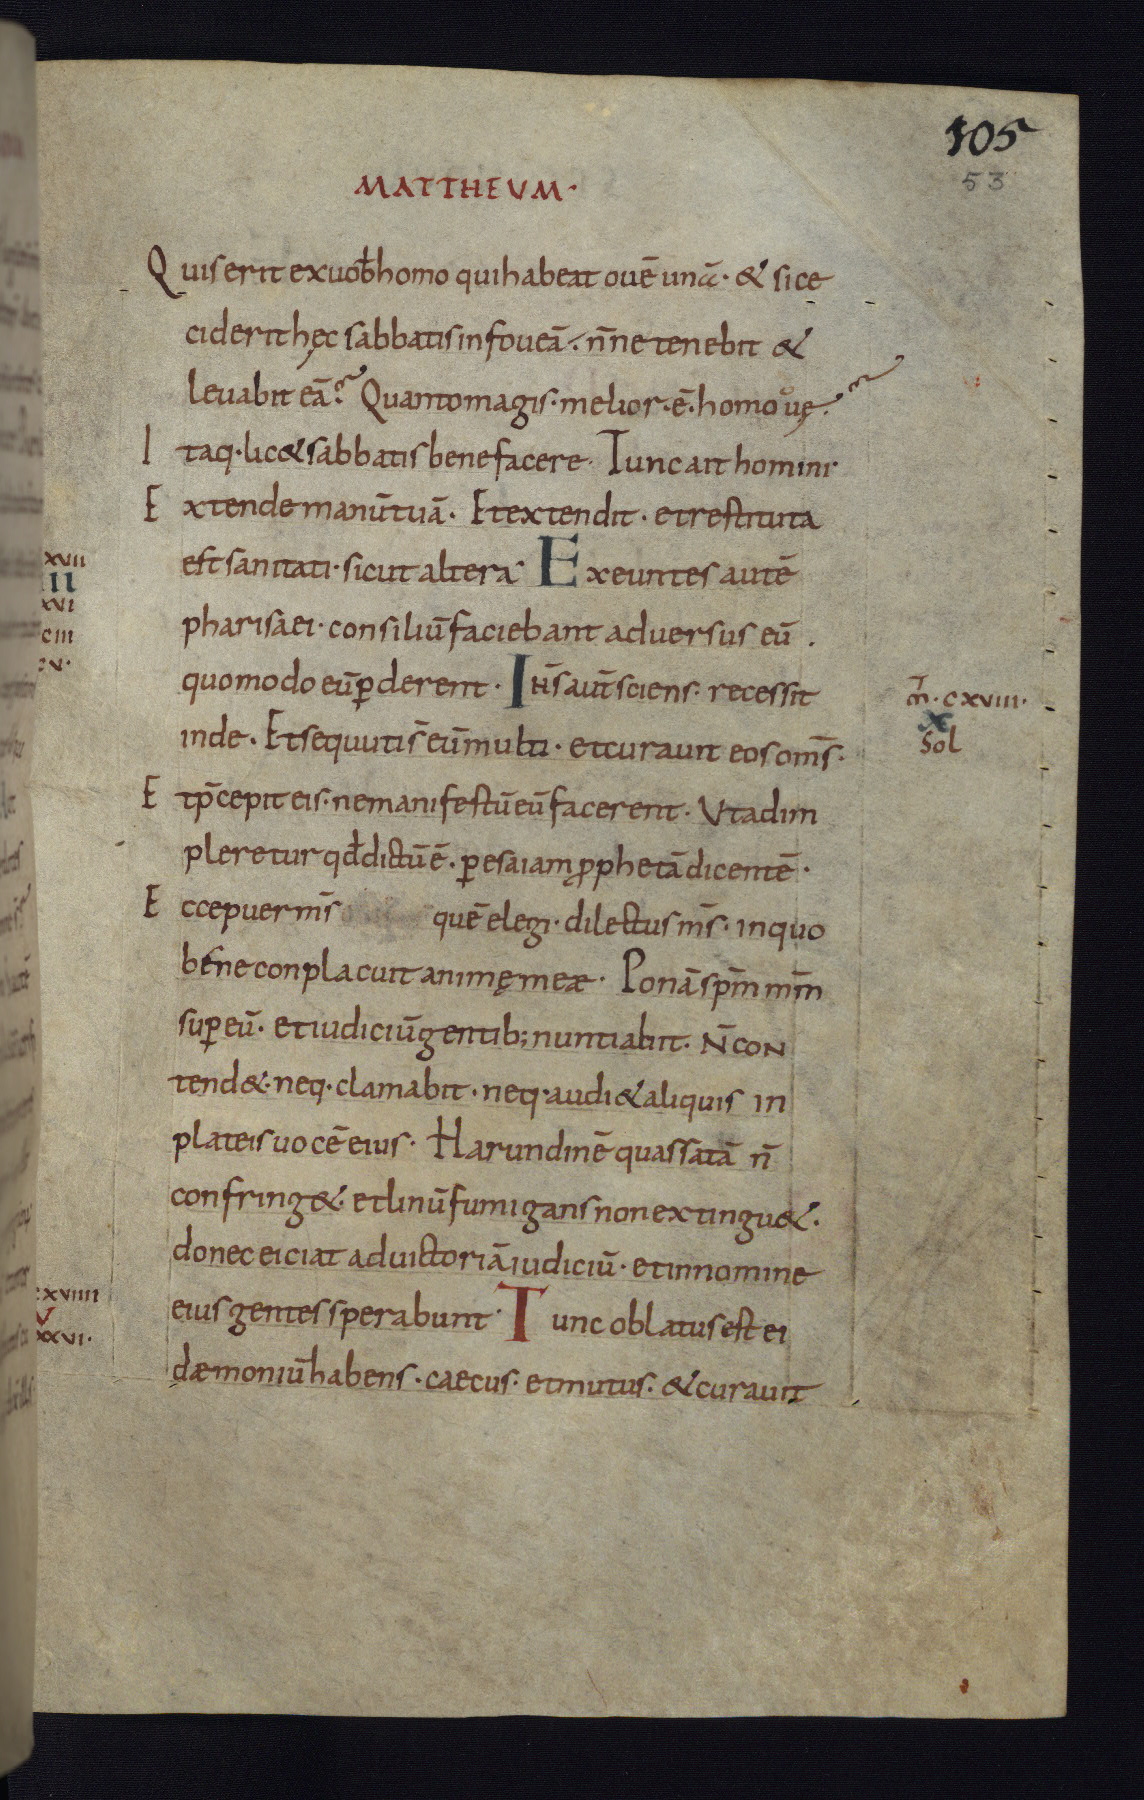 105
53
MATTHEVM·
Quis erit ex uob̄ homo qui habeat ouē unā· & si ce
ciderit hęc sabbatis in foueā· n̄ne tenebit &
leuabit eā? Quanto magis· melior· ē· homo oue·
Itaq· lic& sabbatis bene facere· Tunc ait homini·
Extende manū tuā· Et extendit· et restituta
est sanitati· sicut altera· Exeuntes autē
pharisaei· consiliū faciebant aduersus eū·
quomodo eū p̄derent· Ih̄s aut̄ sciens· recessit
inde· Et sequuti s̄ eū multi· et curauit eos om̄s·
Et p̄cepit eis· ne manifestū eū facerent· Vt adim
pleretur qd̄ dictū ē· p̄ esaiam p̄phetā dicentē·
Ecce puer m̄s quē elegi· dilectus m̄s· in quo
bene conplacuit animę meæ· Ponā sp̄m m̄m
sup̄ eū· et iudiciū gentib; nuntiabit· N̄ con
tend&· neq· clamabit· neq· audi& aliquis in
plateis uocē eius· Harundinē quassatā n̄
confring&· et linū fumigans non extingu&·
donec eiciat ad uictoriā iudiciū· et in nomine
eius gentes sperabunt· Tunc oblatus est ei
dæmoniū habens· caecus· et mutus· & curauit
xvii
II
xvi
ciii
m̄· cxviii·
x
Sol
xviiii
v
xxvi·